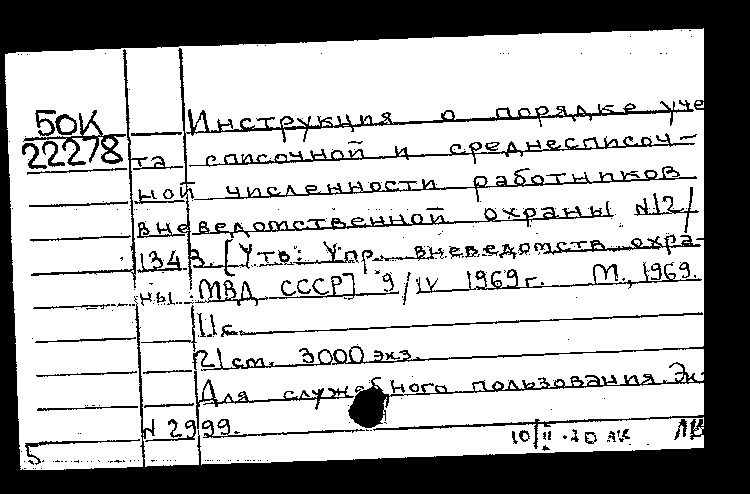 50К Инструкция о порядке уче
22278 та списочной и среднесписоч-
ной численности работников
вневедомственной охраны N12/
1343. [Утв: Упр. вневедомств. охра-
ны МВД СССР] 9/IV 1969г. М., 1969.
11с.
21 см. 3000 экз.
Для служебного пользования. Эк
N 2999.
5 10/II-70 ЛК ЛВ